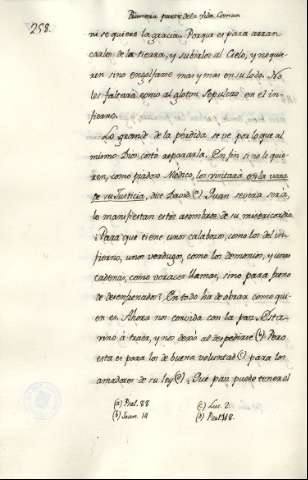 Primera parte de la vida Comun
258.
ni se quiero la gracia. Porque es para arran
carlos de la tierra, y subirlos al Cielo, y no quie
ren sino engolfarse mas y mas en su lodo. No
les faltará como al gloton Sepulcro en el in
fierno.
Lo grande de la pérdida se ve por lo que al
mismo Dios costó repararla. En fin si no le quie
ren, como piadoso Médico, los visitará con la vara
de su Justicia, dice David (a). Quan severa sería,
lo manifiestan estos asombros de su misericordia
¿Para que tiene unos calabozos, como los del in
fierno, unos verdugos, como los demonios, y unas
cadenas, como voraces llamas, sino para freno
de desenfrenados? En todo ha de obrar como qui
en es. Ahora nos convida con la paz. Esta
vino à traer, y nos dexó al despedirse (b). Pero
esta es para los de buena voluntad (c), para los
amadores de su ley (d). Que paz puede tener el
(a) Psal. 88 (c) Luc. 2.
(b) Joann. 14 (d) Psal. 118.